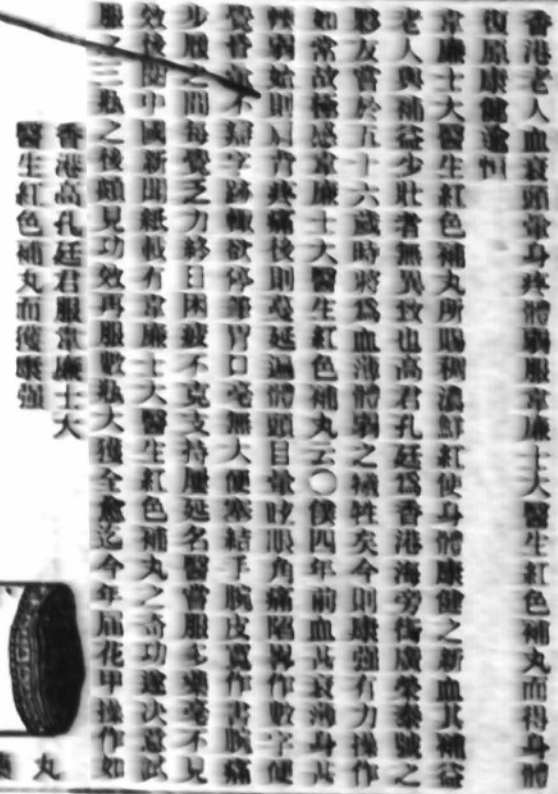 香港老人血衰頭暈身疼體弱服韋廉士大醫生紅色補丸而得身體
復原康健逾恒
韋廉士大醫生紅色補丸所賜稠濃鮮紅使身體康健之新血其補益
老人與補益少壯者無異致也高君孔廷爲香港海旁街廣榮泰號之
夥友嘗於五十六歲時將爲血薄體弱之犧牲矣今則康强有力操作
如常故極感韋廉士大醫生紅色補丸云〇僕四年前血甚衰薄身甚
軟弱始則肩背疼痛後則蔓延遍體頭目暈眩眼角痛陷畧作數字便
覺昏不字跡輙欲停筆胃口毫無大便塞結手腕皮寬作書腕痛
少頃之間每覺乏力終日困疲不克支持屢延名醫嘗服多藥毫不見
效後閱中國新聞紙載有韋廉士大醫生紅色補丸之奇功遂决意試
服之三瓶之後頗見功效再服數瓶大獲全愈迄今年屆花甲操作如
香港高孔廷君服韋廉士大
醫生紅色補丸而獲康强
丸